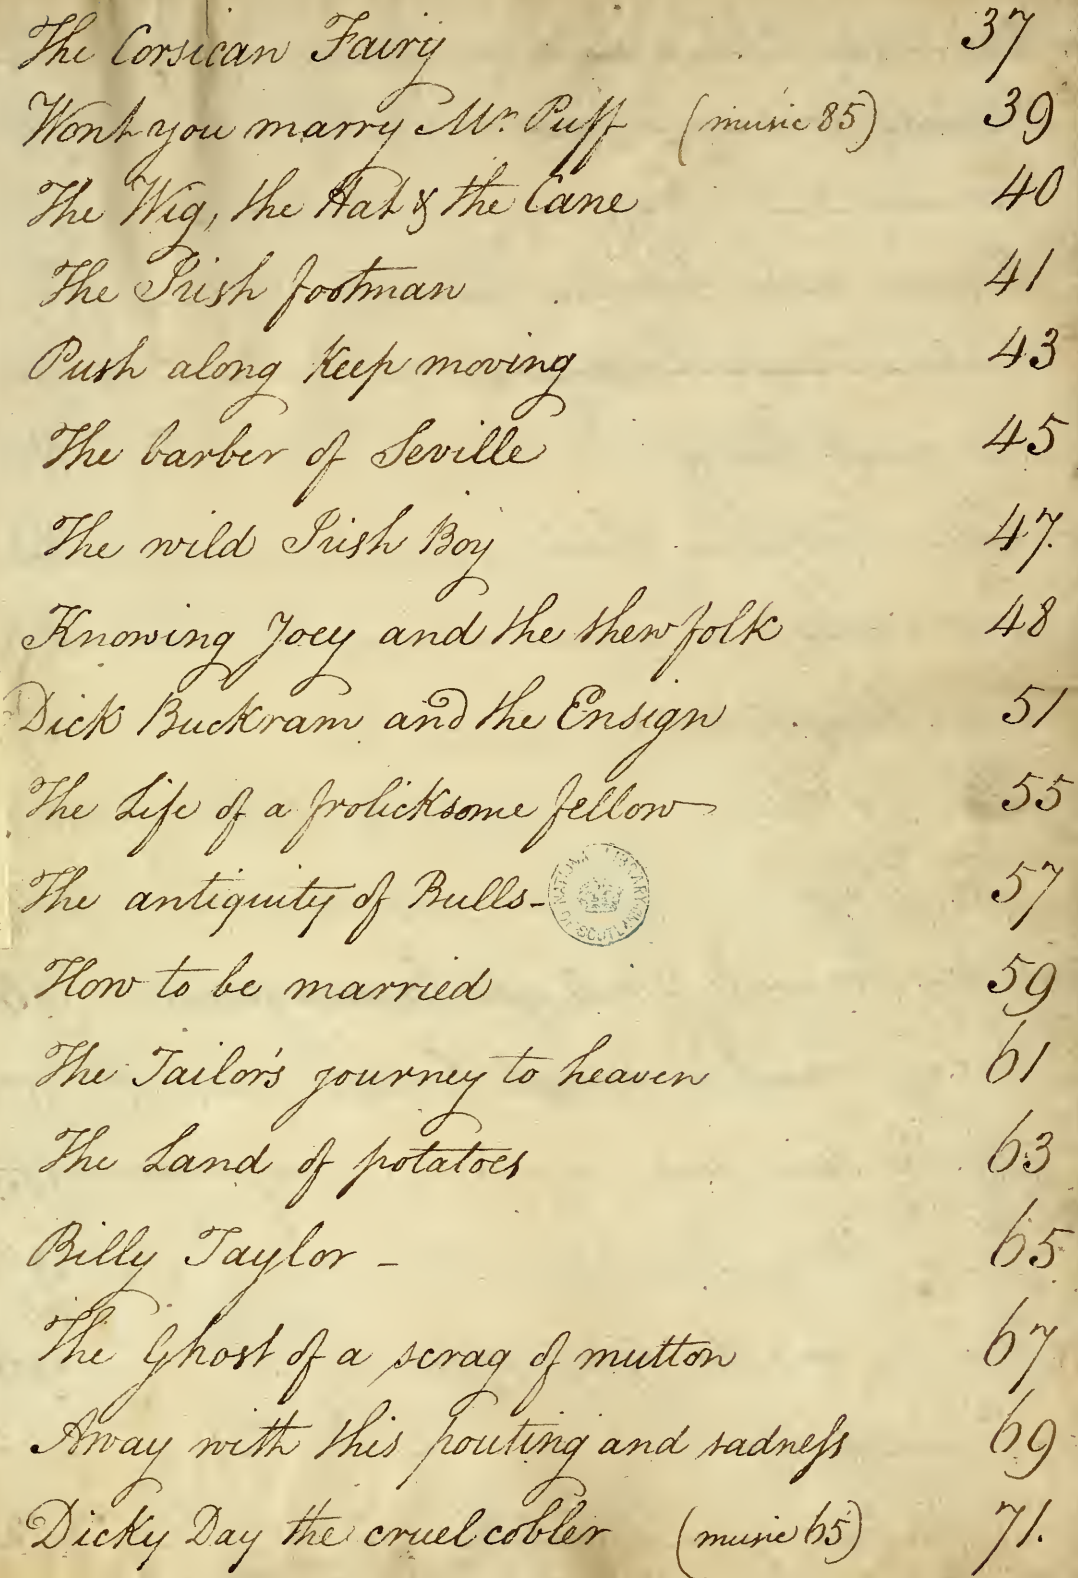 The Corsican Fairy 37
Wont you marry Mr. Puff (music 85) 39
The Wig, the Hat & the Cane 40
The Irish footman 41
Push along Keep moving 43
The barber of Seville 45
The wild Irish Boy 47.
Knowing Joey and the shew folk 48
Dick Buckram and the Ensign 51
The Life of a frolicksome fellow 55
The antiquity of Bulls- 57
NATIONAL LIBRARY OF SCOTLAND
How to be married 59
The Tailor's journey to heaven 61
The Land of potatoes 63
Billy Taylor - 65
The Ghost of a scrag of mutton 67
Away with this pouting and sadneſs 69
Dicky Day the cruel cobler (music 65) 71.